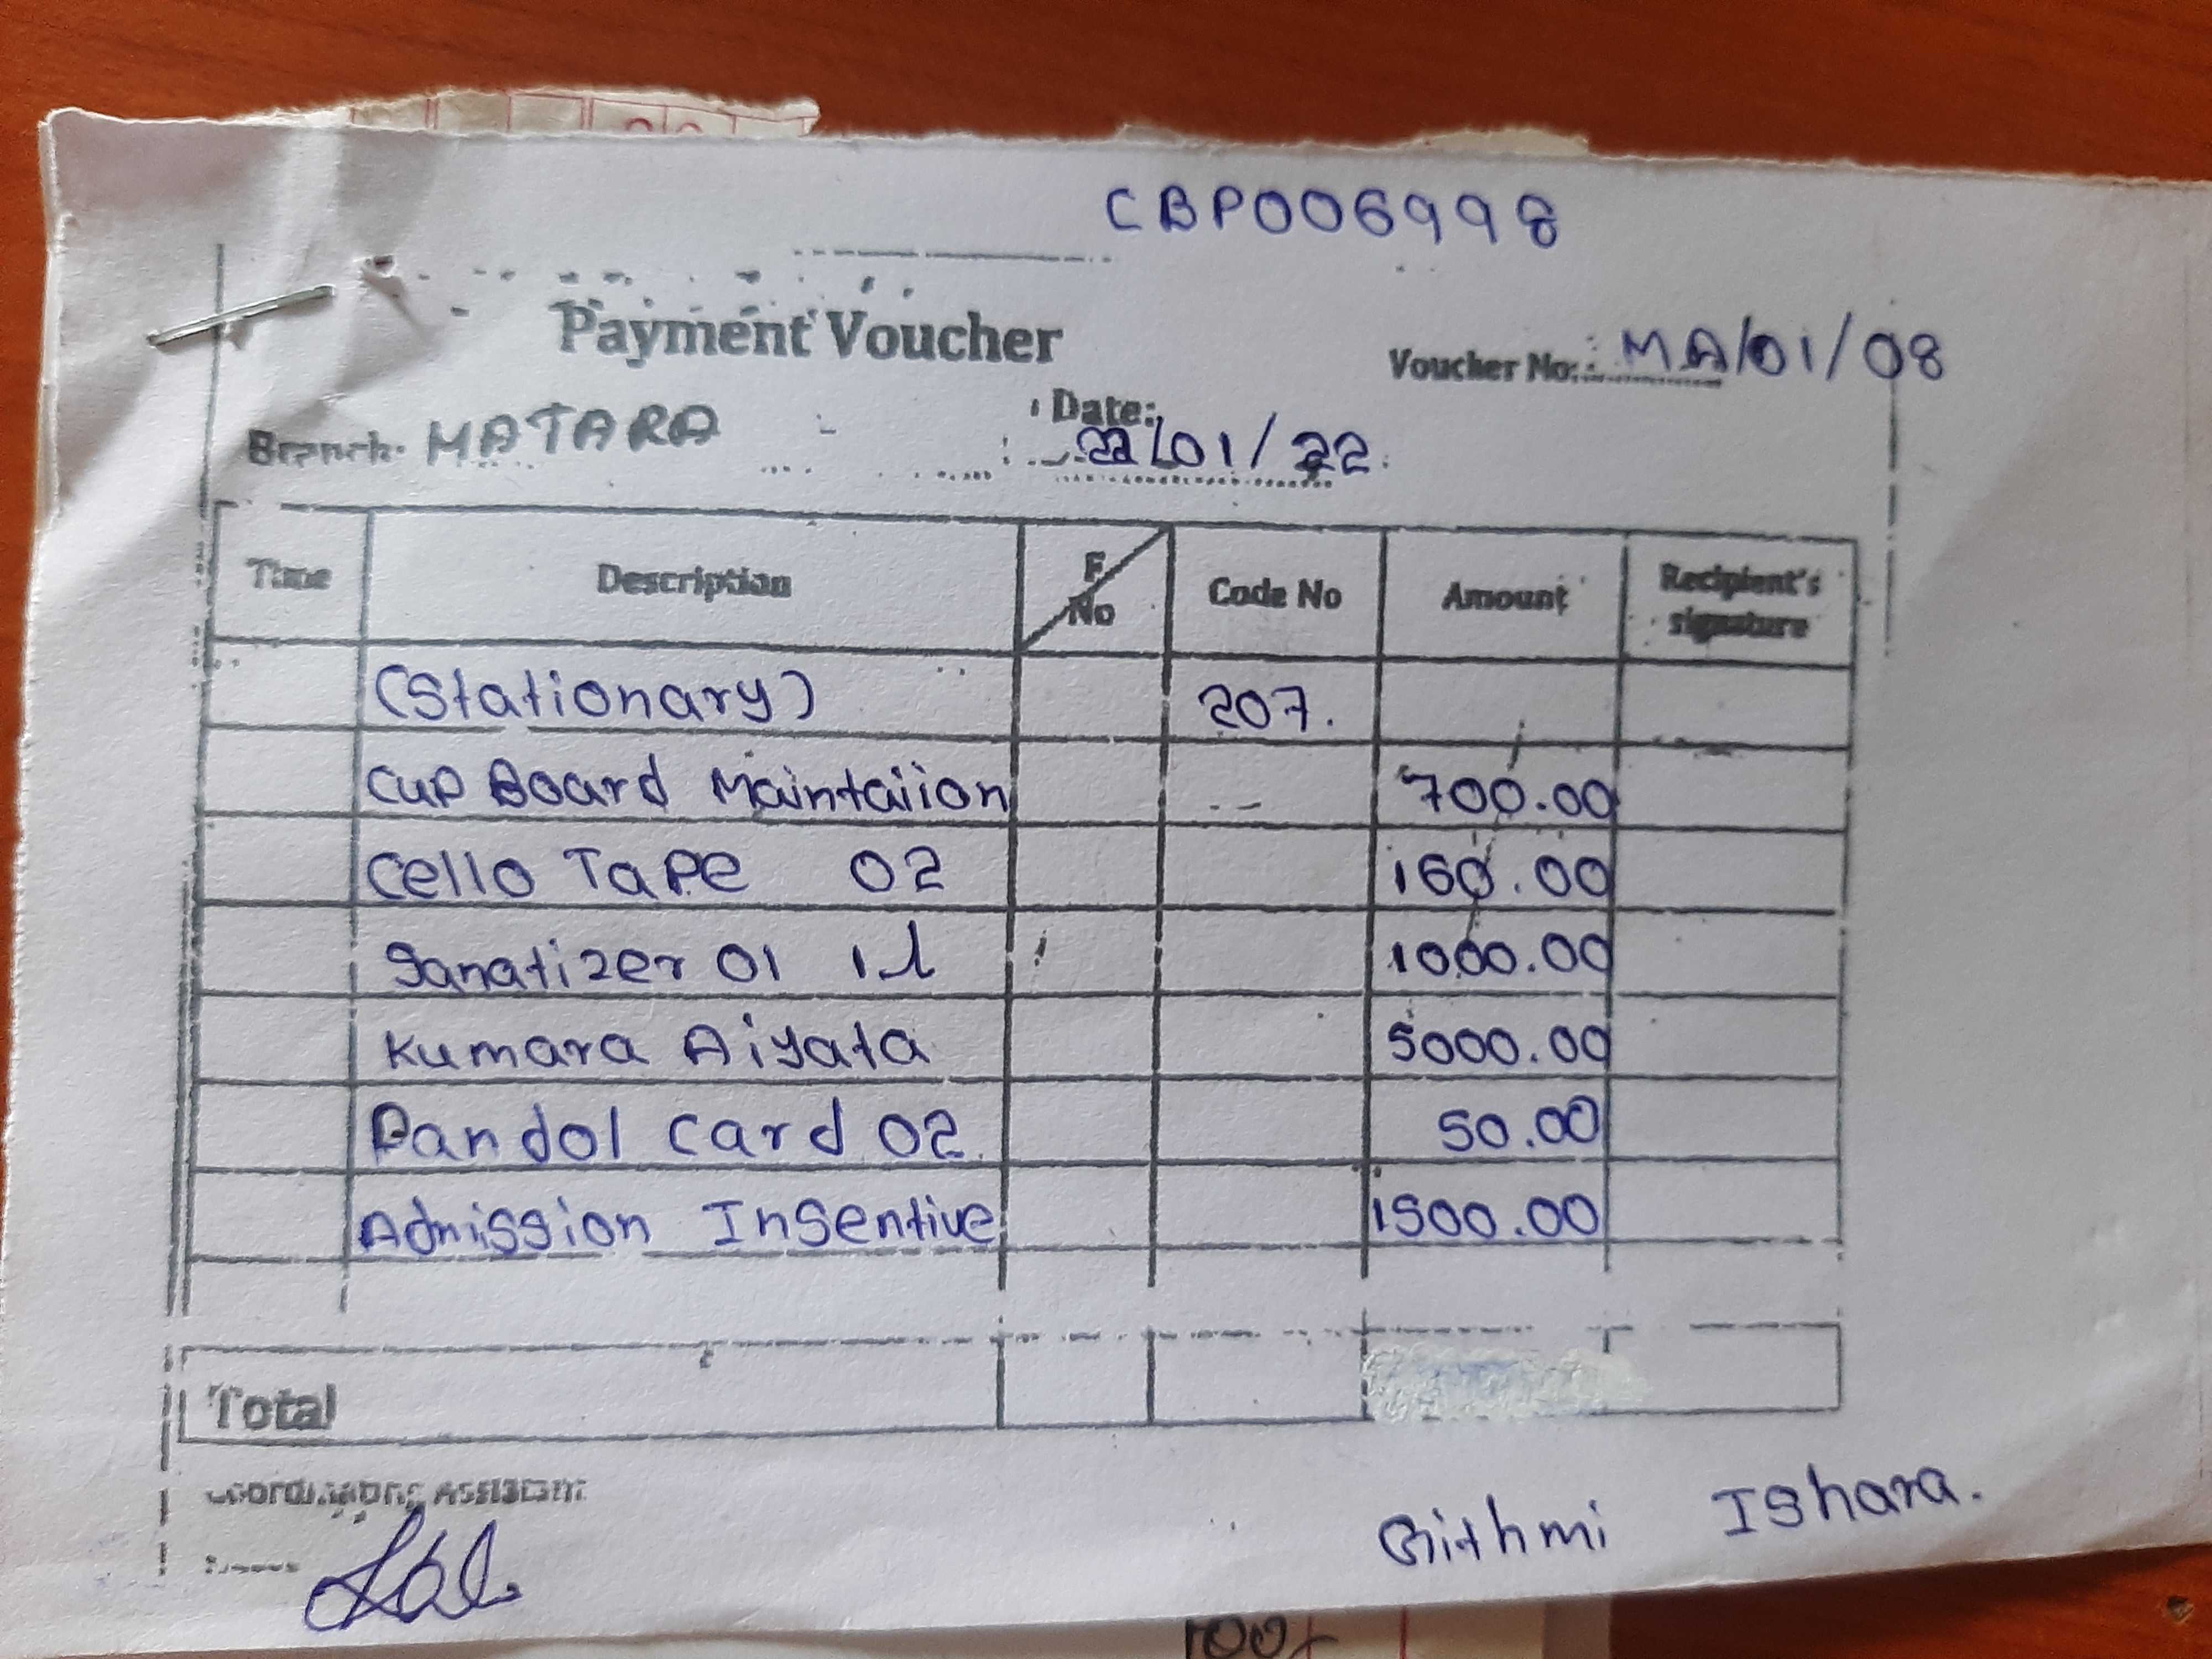 CBP006998
Payment Voucher
Voucher No: MA/01/08
Branch: MATARA Date: 22/01/22
Time Description F. No Code No Amount Recipient's signature
(Stationary) 207.
Cup Board Maintaiion 700.00
Cello Tape 02 160.00
Sanatizer 01 1l 1000.00
Kumara Aiyata 5000.00
Pandol card 02 50.00
Admission Insentive 1500.00
Total
Coordinating Assistant
Githmi Ishara.
100/